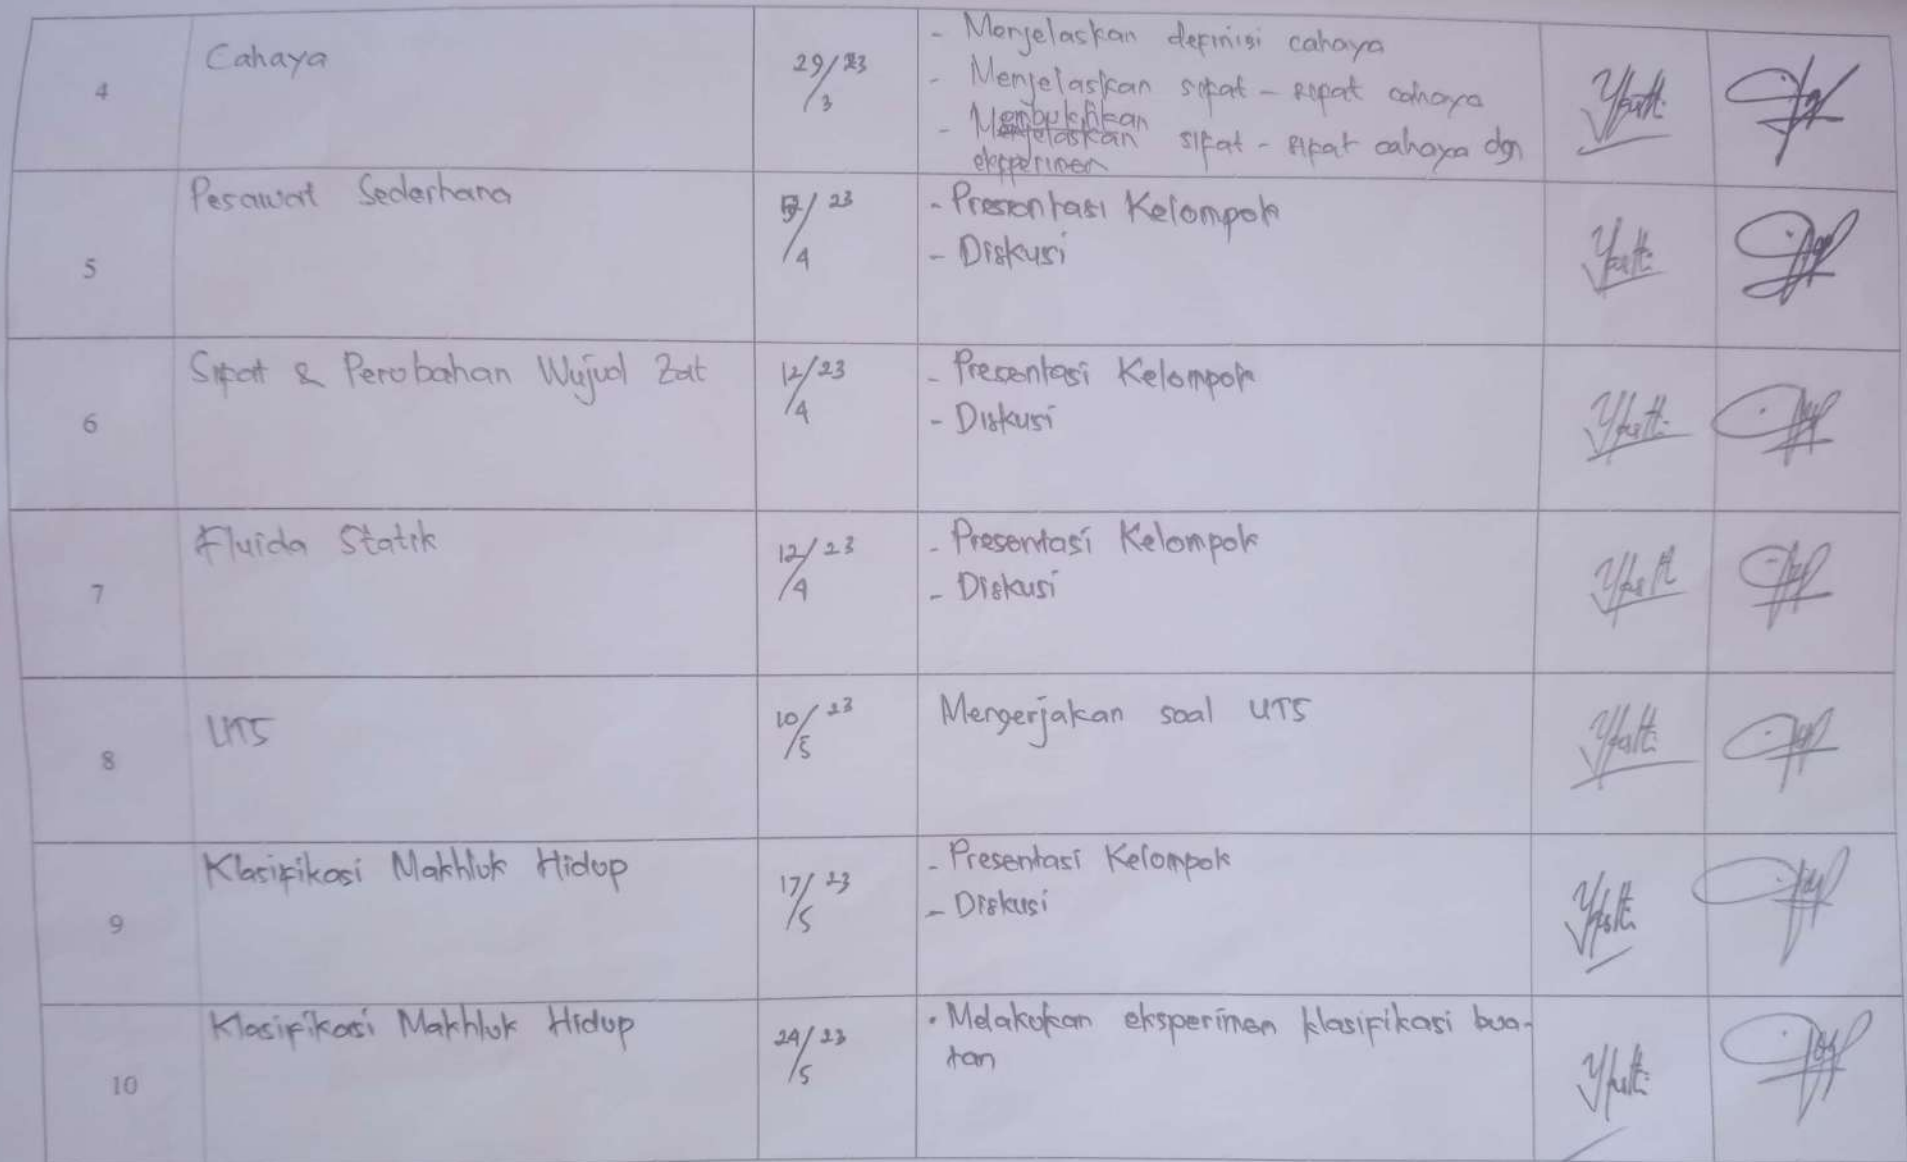 4
Cahaya
29/3 23
- Menjelaskan definisi cahaya
- Menjelaskan sifat - sifat cahaya
- Membuktikan sifat - sifat cahaya dgn
eksperimen
5
Pesawat Sederhana
5/4 23
- Presentasi Kelompok
- Diskusi
6
Sifat & Perubahan Wujud Zat
12/4 23
- Presentasi Kelompok
- Diskusi
7
Fluida Statik
12/4 23
- Presentasi Kelompok
- Diskusi
8
UTS
10/5 23
Mengerjakan soal UTS
9
Klasifikasi Makhluk Hidup
17/5 23
- Presentasi Kelompok
- Diskusi
10
Klasifikasi Makhluk Hidup
24/5 23
• Melakukan eksperimen klasifikasi bua-
tan